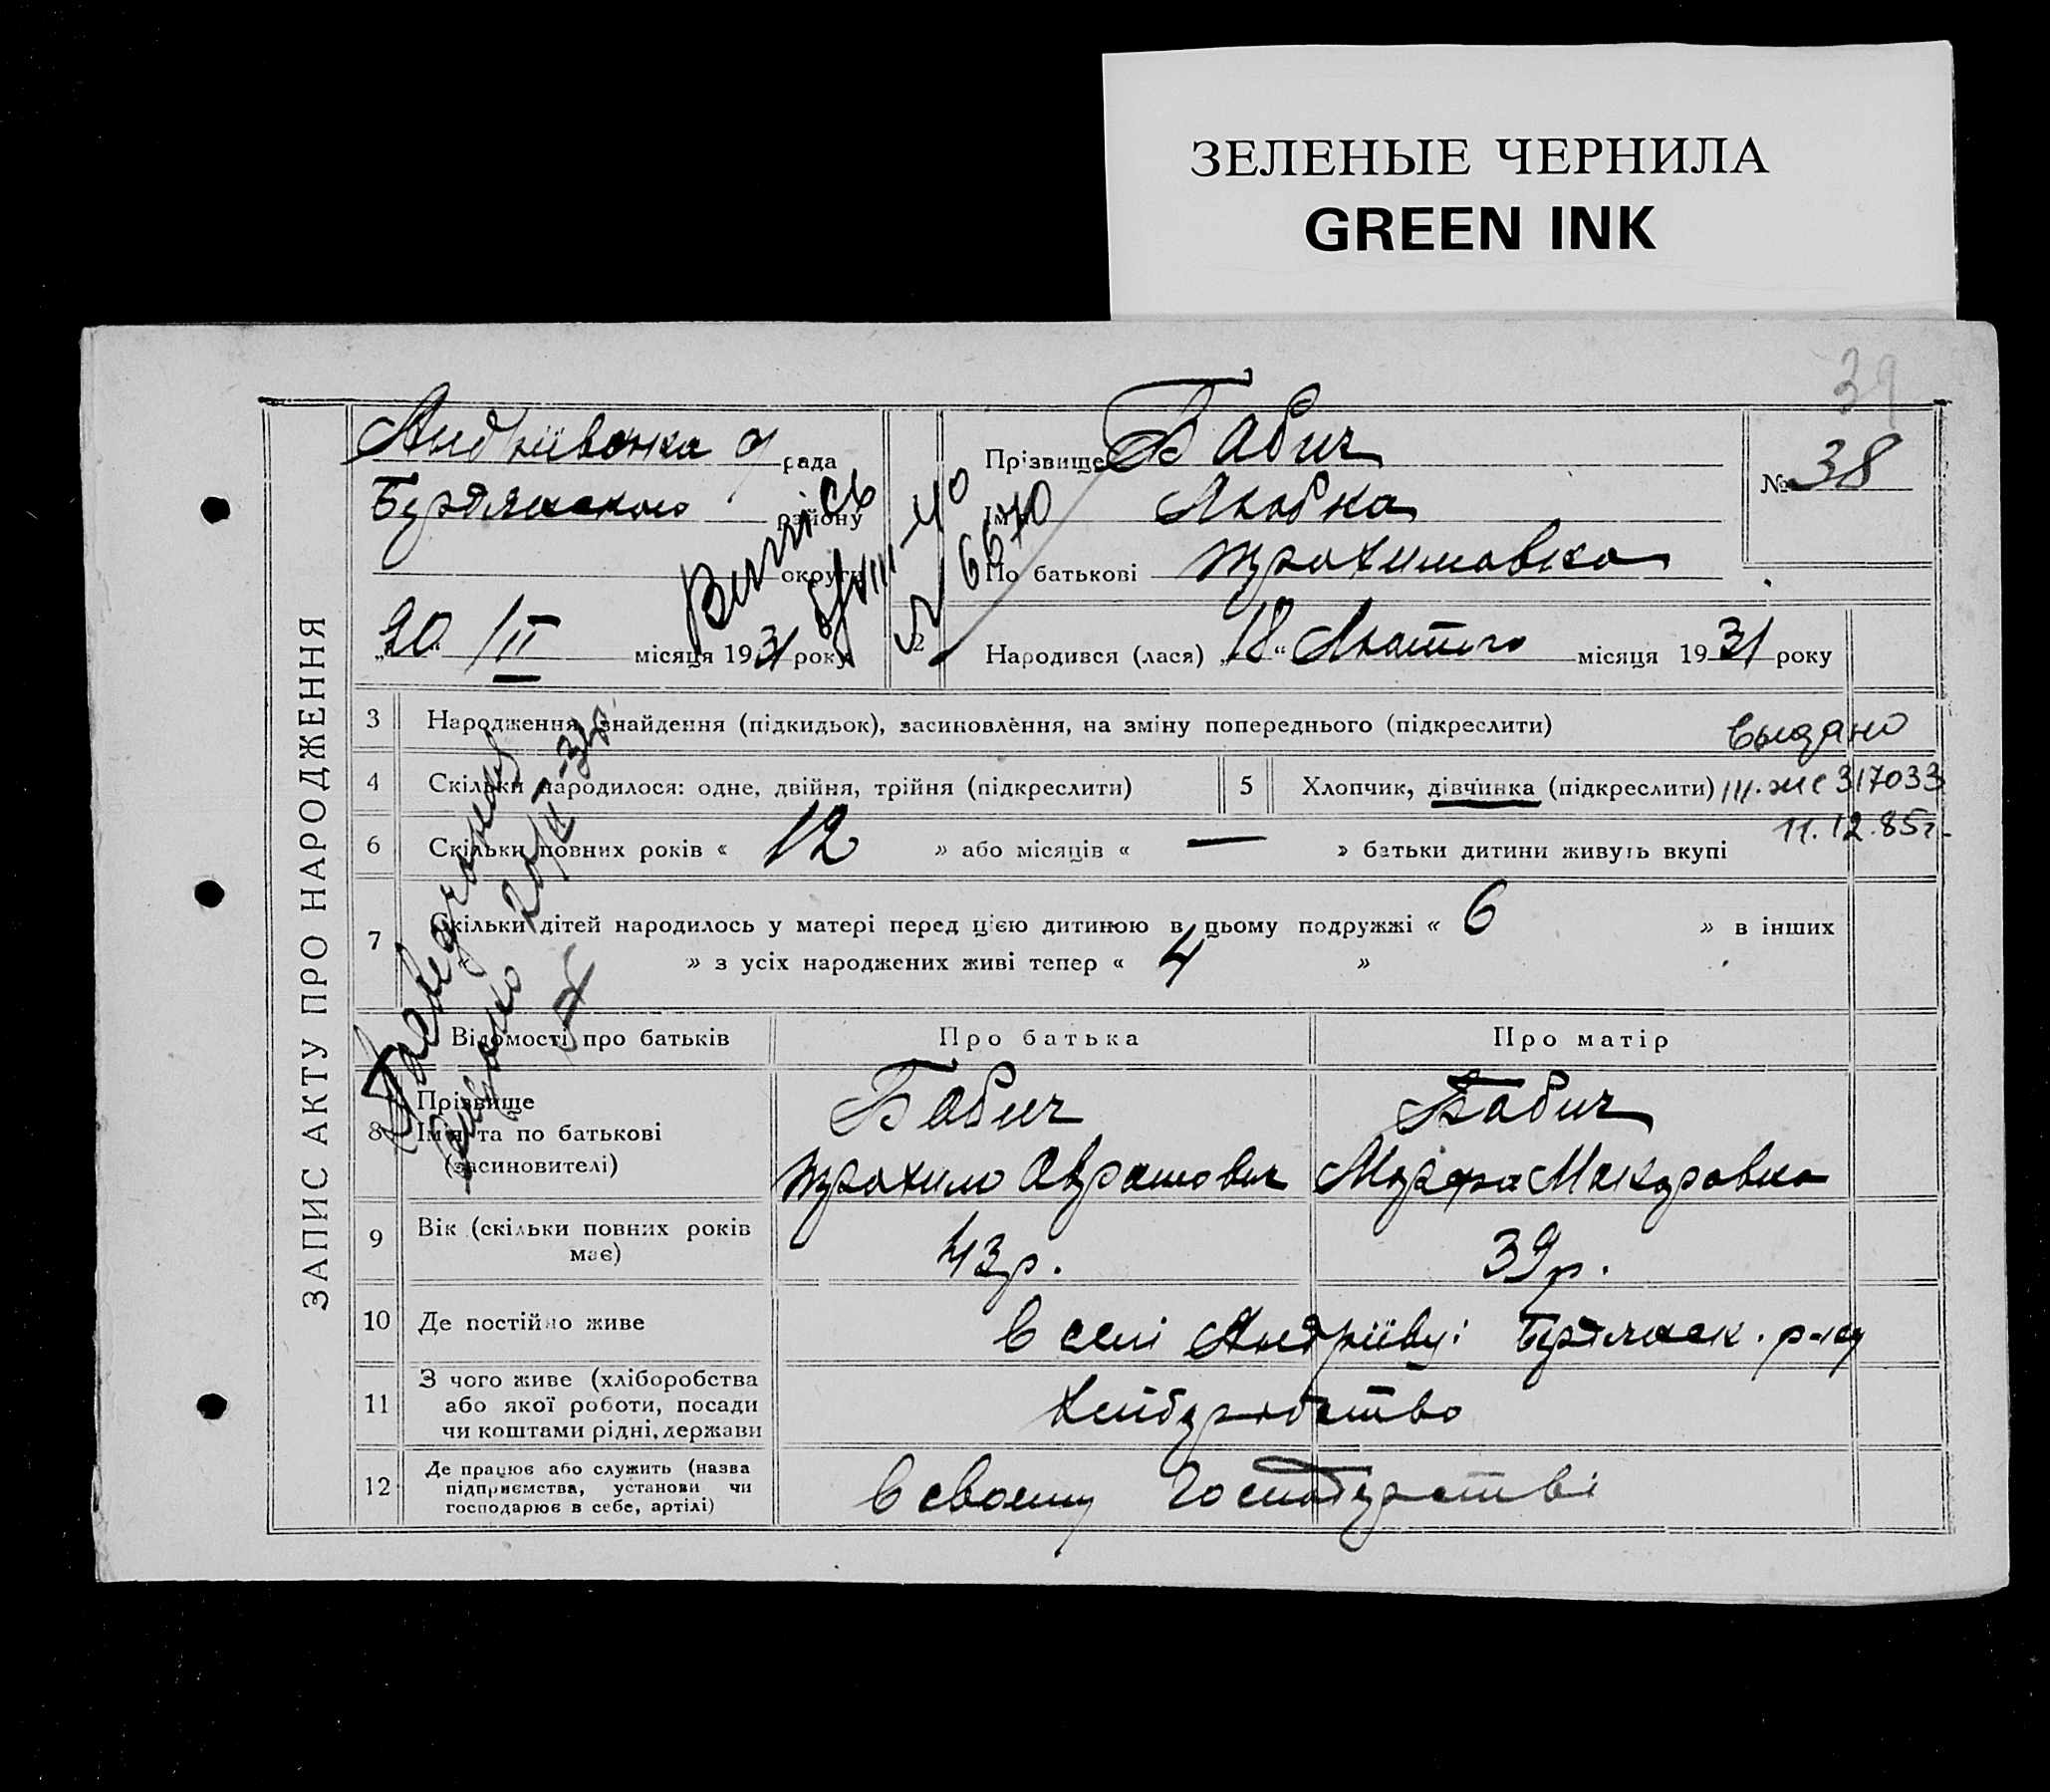 ЗЕЛЕНЫЕ ЧЕРНИЛА
GREEN INK
39
ЗАПИС АКТУ ПРО НАРОДЖЕННЯ
Андріївська рада
Бердянського району
округи
„20“ /II місяця 1931 року
Випись
5/VIII-40
№ 6670
2
Прізвище Бабич
Ім'я Любка
По батькові Трохимовна
№ 38
Народився (лася) „18“ Лютого місяця 1931 року
3 Народження, знайдення (підкидьок), засиновлення, на зміну попереднього (підкреслити)
Выдано
4 Скільки народилося: одне, двійня, трійня (підкреслити)
5 Хлопчик, дівчинка (підкреслити)
III-ЖС 317033
11.12.85г.
6 Скільки повних років « 12 » або місяців « — » батьки дитини живуть вкупі
7 Скільки дітей народилось у матері перед цією дитиною в цьому подружжі « 6 » в інших
« » з усіх народжених живі тепер « 4 »
Відомості про батьків
Про батька
Про матір
8 Прізвище
Ім'я та по батькові
(засиновителі)
Бабич
Трохим Аврамович
Бабич
Марфа Макаровна
9 Вік (скільки повних років
має)
43 р.
39 р.
10 Де постійно живе
в селі Андріївці Бердянськ. р-ну
11 З чого живе (хліборобства
або якої роботи, посади
чи коштами рідні, держави
Хліборобство
12 Де працює або служить (назва
підприємства, установи чи
господарює в себе, артілі)
в своєму Господарстві